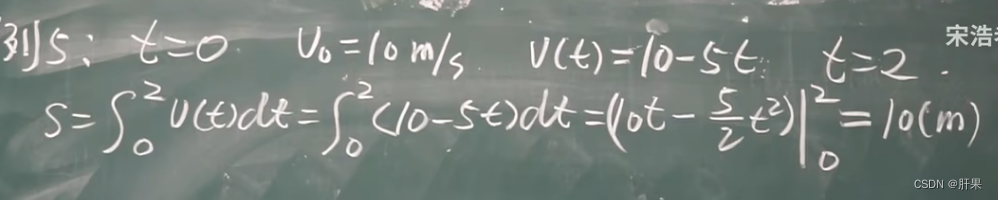 例5: t=0 v₀=10m/s v(t)=10-5t. t=2.
宋浩
S=∫₀²v(t)dt=∫₀²(10-5t)dt=(10t-5/2t²)|₀²=10(m)
CSDN @肝果